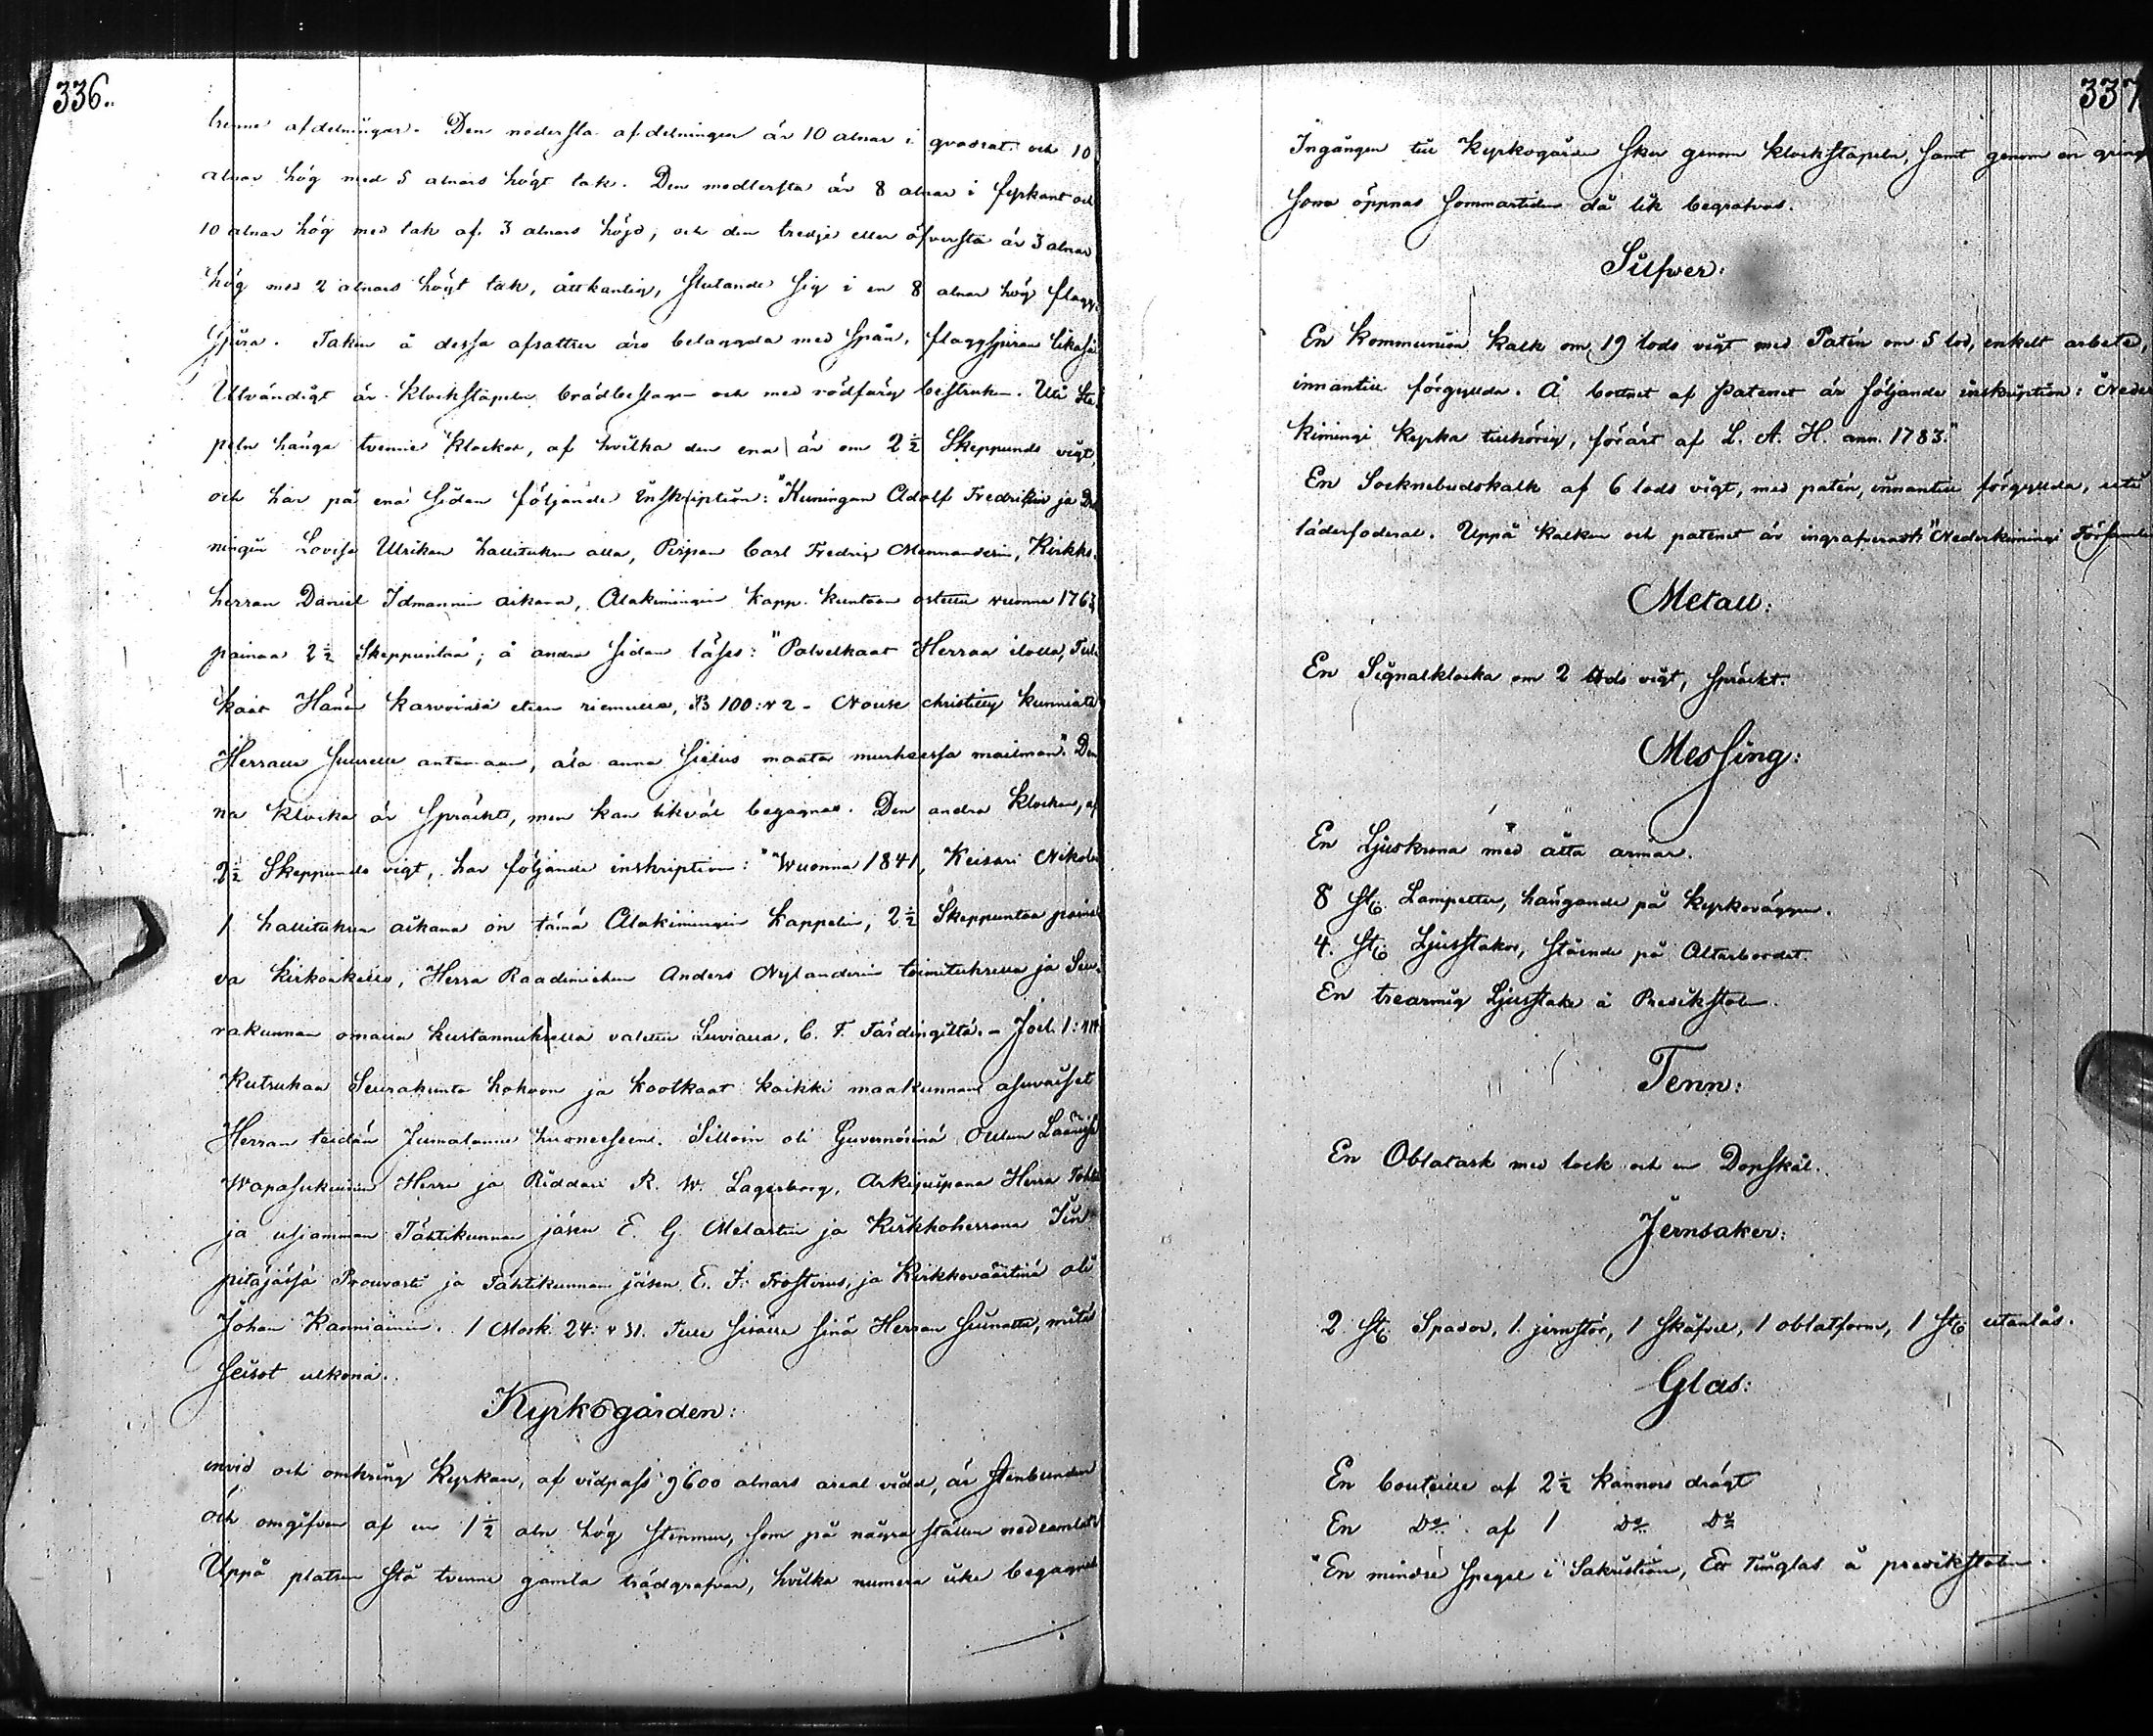 336.
trenne afdelningar. Den nedersta afdelningen är 10 alnar i qvadrat och 10
alnar hög med 5 alnars högt tak. Den medlersta är 8 alnar i fyrkant och
10 alnar hög med tak af 3 alnars höjd, och den tredje eller öfversta är 3 alnar
hög med 2 alnars högt tak, åttkantig, slutande sig i en 8 alnar hög flagg-
spira. Taken å dessa afsattser äro belaggda med spån, flaggspiran likaså
Utvändigt är klockstapeln brädbeslagen och med rödfärg bestruken. Uti sta-
peln hänga tvenne klockor, af hvilka den ena är om 2½ Skeppunds vigt,
och har på ena sidan följande inskription: "Kuningan Adolf Fredrikin ja Drå
ningin Lovisa Ulrikan hallituksen alla, Pispan Carl Fredrig Mennanderin, Kirkko-
herran Daniel Idmannin aikana, Alakimingin Kapp. kuntaan ostettu vuonna 1763
painaa 2½ Skeppuntaa"; å andra sidan läses: "Palvelkaat Herraa ilolla, Tul-
kaat Hänen kasvoinsa eteen riemulla, Ps 100: v 2 - Nouse christitty kunniata
Herralle suurelle antamaan, älä anna sielus maata murheessa mailman". Den
na klocka är spräckt, men kan likväl begagnas. Den andra klockan, af
2½ Skeppunds vigt, har följande inskription: "Wuonna 1841, Keisari Nikolai
1 hallituksen aikana on tämä Alakimingin kappelin, 2½ Skeppuntaa paina-
va kirkonkello, Herra Raadimiehen Anders Nylanderin toimituksella ja Seu-
rakunnan omalla kustannuksella valettu Luvialla, C. F. Färdingiltä. - Joel. 1: v 14
Kutsukaa Seurakunta kokoon ja kootkaat kaikki maakunnan asuvaiset
Herran teidän Jumalanne huoneeseen. Silloin oli Guvernörinä Oulun Läänisä
Wapasukuinen Herra ja Riddari R. W. Lagerborg, Arkipispana Herra Tohtori
ja usiamman Tähtikunnan jäsen E. G. Melartin ja Kirkkoherrana Iin
pitäjäsä Prouvasti ja Tähtikunnan jäsen E. J. Frosterus, ja Kirkkoväärtinä oli
Johan Kanniainen. 1 Mosk. 24: v 31. Tule sisälle sinä Herran siunattu, miksi
seisot ulkona.
Kyrkogården:
invid och omkring Kyrkan, af vidpass 9600 alnars areal vidd, är stenbunden
och omgifven af en 1½ aln hög stenmur, som på några ställen nedramlat.
Uppå platsen stå tvenne gamla trädgrafvar, hvilka numera icke begagnas
337
Ingången till Kyrkogården sker genom klockstapeln, samt genom en grind
som öppnas sommartiden då lik begrafvas.
Silfver:
En Kommunion kalk om 19 lods vigt med Patén om 5 lod, enkelt arbete,
innantill förgyllda. Å bottnet af Patenet är följande inskription: "Neder
kimingi kyrka tillhörig, förärt af L. A. H. ann. 1783."
En Socknebudskalk af 6 lods vigt, med patén, innantill förgyllda, uti
läderfoderal. Uppå kalken och patenet är ingraferadt "Nederkimingi Församling
Metall:
En Signalklocka om 2 lods vigt, spräckt.
Messing:
En Ljuskrona med åtta armar.
8 st. Lampetter, hängande på kyrkoväggen.
4. st. Ljusstakar, stående på Altarbordet.
En trearmig Ljusstake å Predikstolen.
Tenn:
En Oblatask med lock och en Dopskål.
Jernsaker:
2 st. Spador, 1 jernstör, 1 skäfvel, 1 oblatform, 1 st. utanlås.
Glas:
En bouteille af 2½ kannors drägt
En Do af 1 Do Do
En mindre spegel i Sakristian, Ett Timglas å predikstolen.